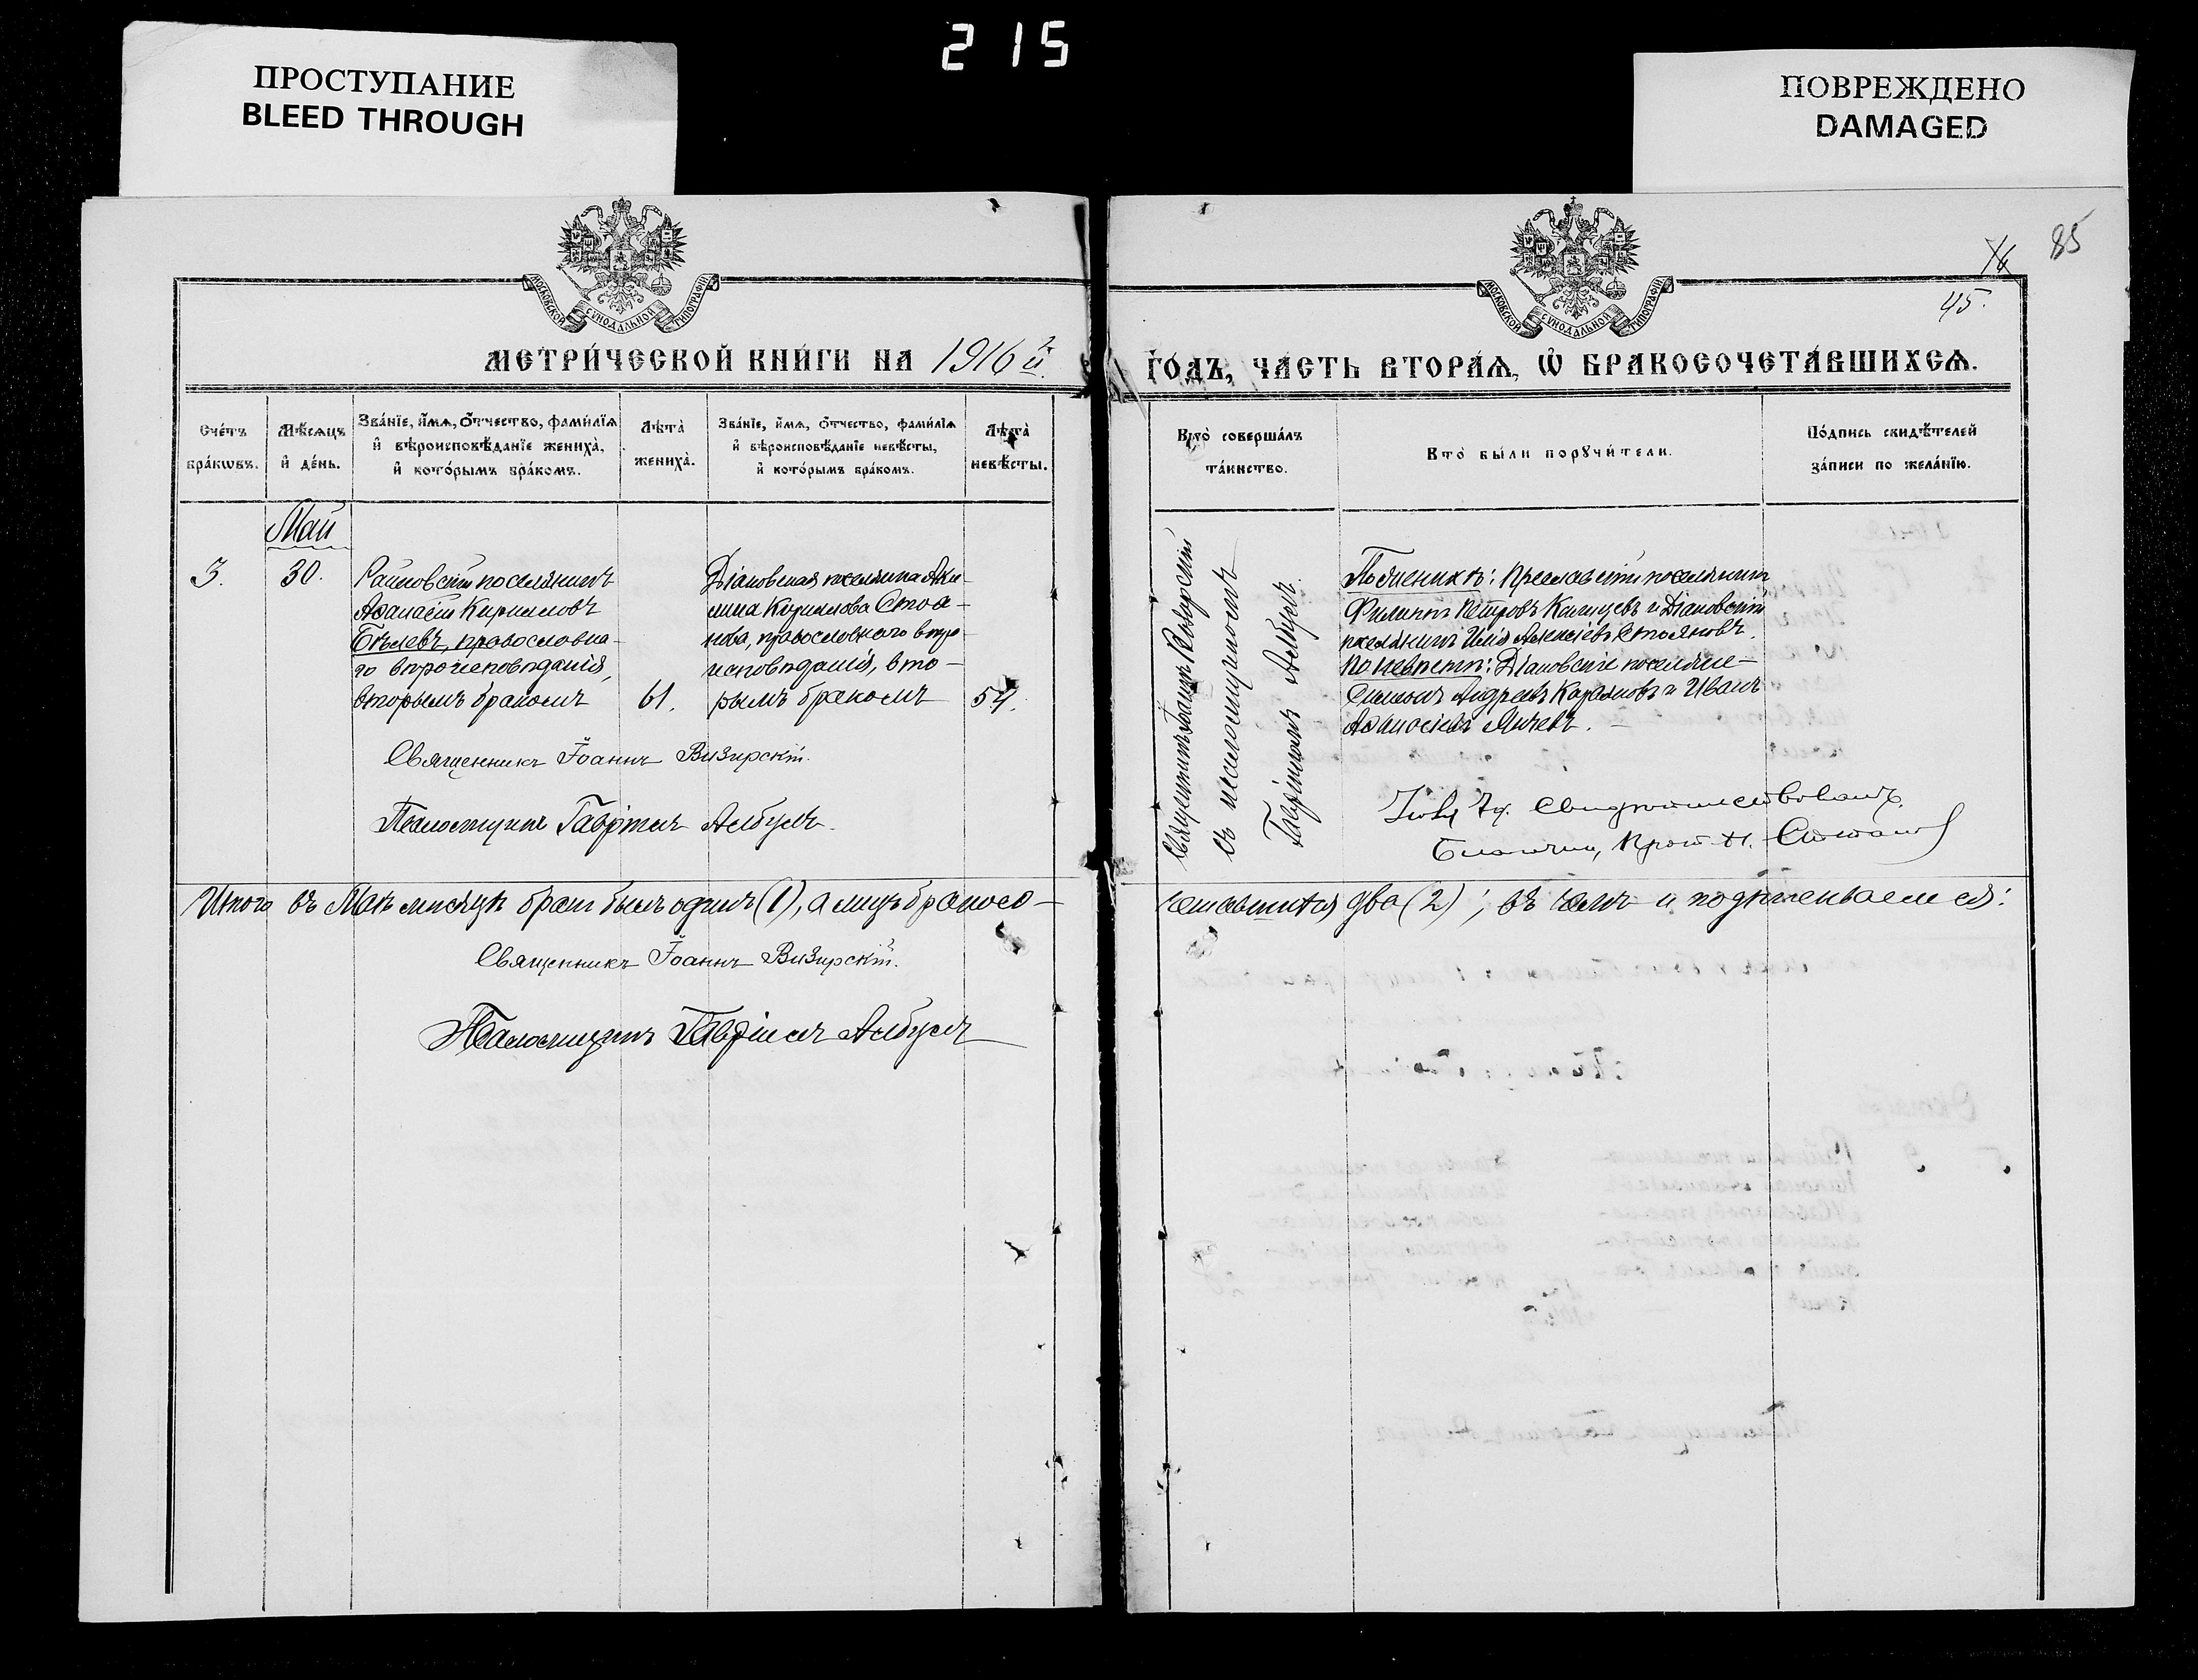 215
ПРОСТУПАНИЕ
BLEED THROUGH
ПОВРЕЖДЕНО
DAMAGED
85
45.
МОСКОВСКОЙ СУНОДАЛЬНОЙ ТИПОГРАФІИ
МОСКОВСКОЙ СУНОДАЛЬНОЙ ТИПОГРАФІИ
МЕТРИ́ЧЕСКОЙ КНИ́ГИ НА 1916 й.
ГО́ДЪ, ЧА́СТЬ ВТОРА́Ѧ, Ѿ БРАКОСОЧЕТА́ВШИХСѦ.
Сче́тъ бра́кѡвъ.
Мѣ́сѧцъ и҆ де́нь.
Зва́нїе, и҆́мѧ, ѻ҆́тчество, фами́лїѧ и҆ вѣроисповѣ́данїе жениха̀, и҆ кото́рымъ бра́комъ.
Лѣ́та жениха̀.
Зва́нїе, и҆́мѧ, ѻ҆́тчество, фами́лїѧ и҆ вѣроисповѣ́данїе невѣ́сты, и҆ кото́рымъ бра́комъ.
Лѣ́та невѣ́сты.
Кто̀ соверша́лъ та́инство.
Кто̀ бы́ли порꙋчи́тели.
По́дпись свидѣ́телей за́писи по жела́нїю.
Май
3.
30.
Райновскій поселянинъ
Аѳанасій Кирилловъ
Бѣлевъ, православна-
го вѣроисповѣданія,
вторымъ бракомъ
61.
Діановская поселянка Аки-
лина Кириллова Стоя-
нова, православнаго вѣро-
исповѣданія, вто-
рымъ бракомъ
54.
Священникъ Іоаннъ Визирскій
съ псаломщикомъ
Гавріиломъ Албулъ.
По женихѣ: Преславскій поселянинъ
Филиппъ Петровъ и Діановскій
поселянинъ Илія Алексіевъ Стояновъ.
По невѣстѣ: Діановскіе поселяне-
Симеонъ Андреевъ и Иванъ
Аѳанасіевъ
Священникъ Іоаннъ Визирскій.
Псаломщикъ Гавріилъ Албулъ.
свидѣтельствовалъ
Итого въ Маѣ мѣсяцѣ бракъ былъ одинъ (1), а лицъ бракосо-
четавшихся два (2); въ чемъ и подписываемся:
Священникъ Іоаннъ Визирскій.
Псаломщикъ Гавріилъ Албулъ